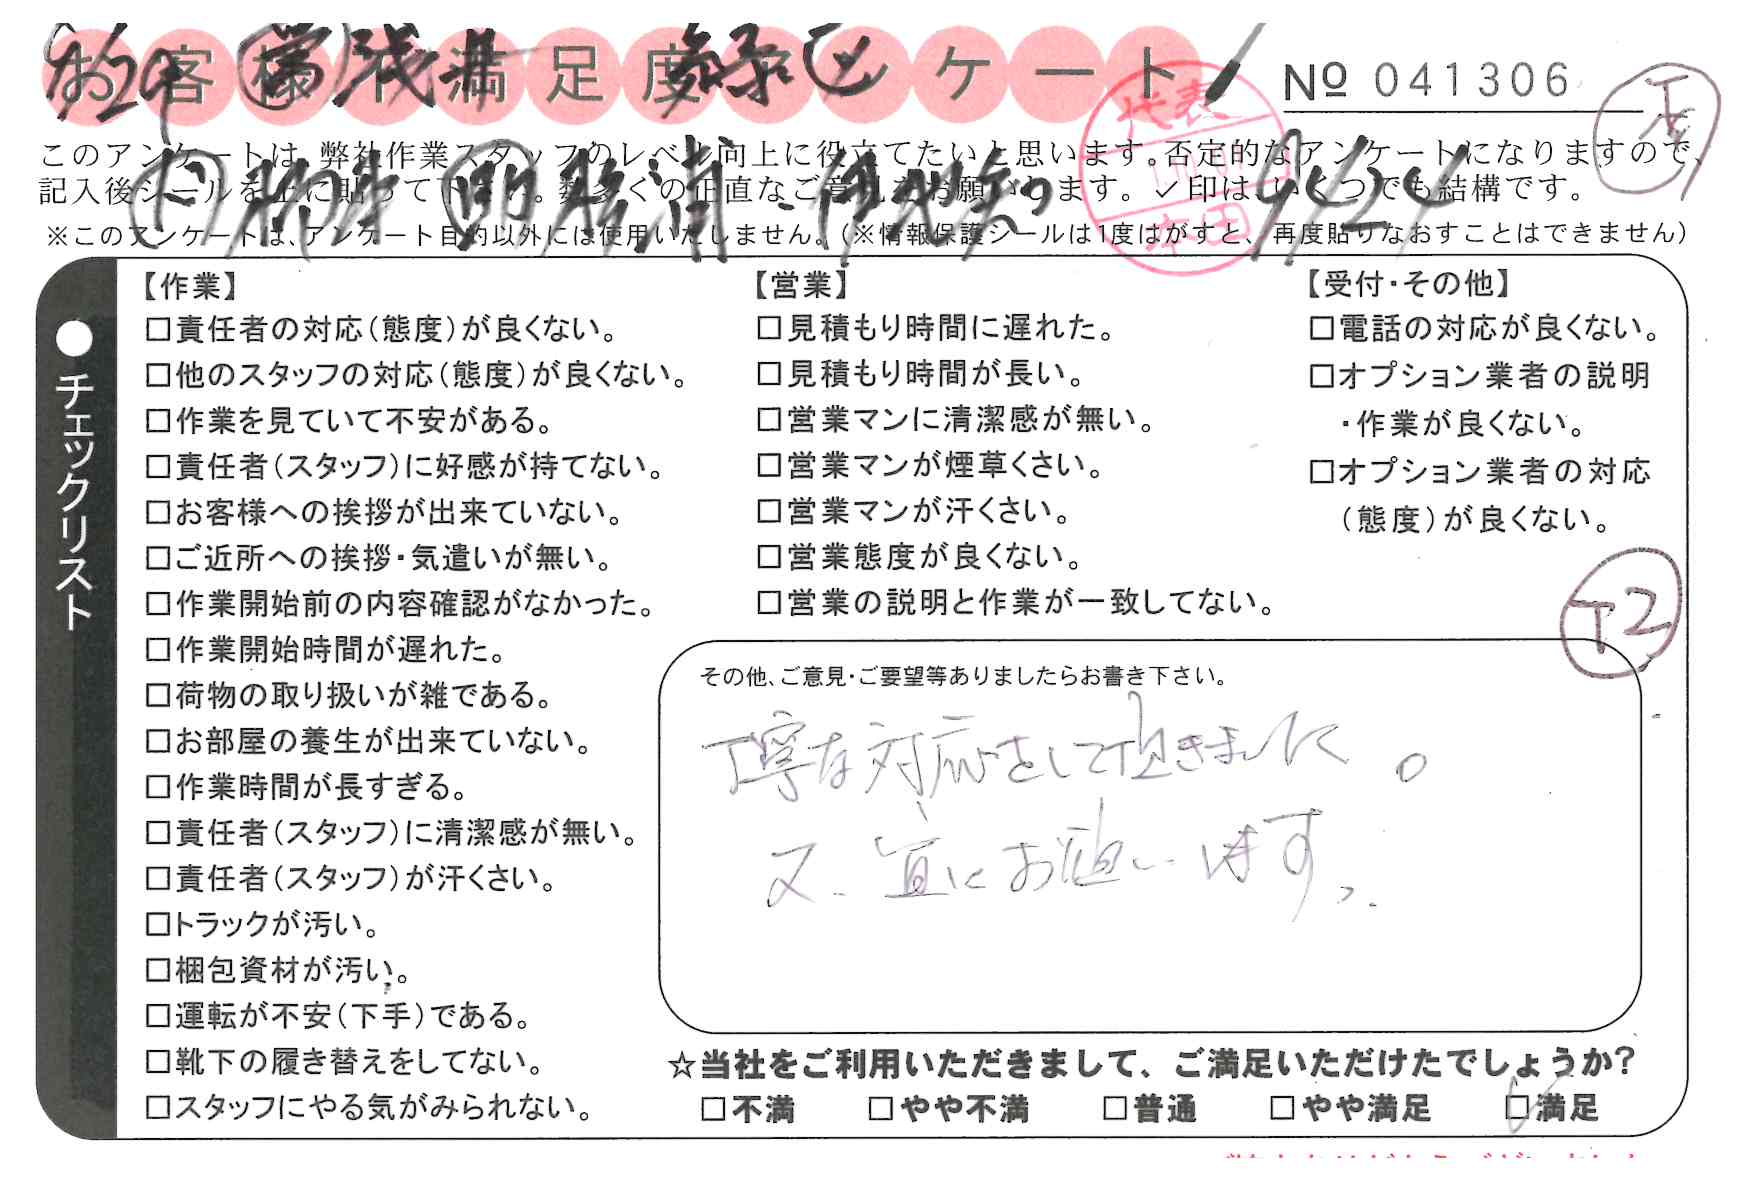 お客様満足度アンケート
№ 041306
このアンケートは、弊社作業スタッフのレベル向上に役立てたいと思います。否定的なアンケートになりますので、
記入後シールを上に貼って下さい。数多くの正直なご意見をお願いします。✓印は、いくつでも結構です。
※このアンケートは、アンケート目的以外には使用いたしません。(※情報保護シールは1度はがすと、再度貼りなおすことはできません)
9/24
代表
本田
●チェックリスト
【作業】
□責任者の対応(態度)が良くない。
□他のスタッフの対応(態度)が良くない。
□作業を見ていて不安がある。
□責任者(スタッフ)に好感が持てない。
□お客様への挨拶が出来ていない。
□ご近所への挨拶・気遣いが無い。
□作業開始前の内容確認がなかった。
□作業開始時間が遅れた。
□荷物の取り扱いが雑である。
□お部屋の養生が出来ていない。
□作業時間が長すぎる。
□責任者(スタッフ)に清潔感が無い。
□責任者(スタッフ)が汗くさい。
□トラックが汚い。
□梱包資材が汚い。
□運転が不安(下手)である。
□靴下の履き替えをしてない。
□スタッフにやる気がみられない。
【営業】
□見積もり時間に遅れた。
□見積もり時間が長い。
□営業マンに清潔感が無い。
□営業マンが煙草くさい。
□営業マンが汗くさい。
□営業態度が良くない。
□営業の説明と作業が一致してない。
【受付・その他】
□電話の対応が良くない。
□オプション業者の説明
・作業が良くない。
□オプション業者の対応
(態度)が良くない。
T2
その他、ご意見・ご要望等ありましたらお書き下さい。
丁寧な対応をして頂きました。
又、宜にお願いします。
☆当社をご利用いただきまして、ご満足いただけたでしょうか?
□不満 □やや不満 □普通 □やや満足 ☑満足